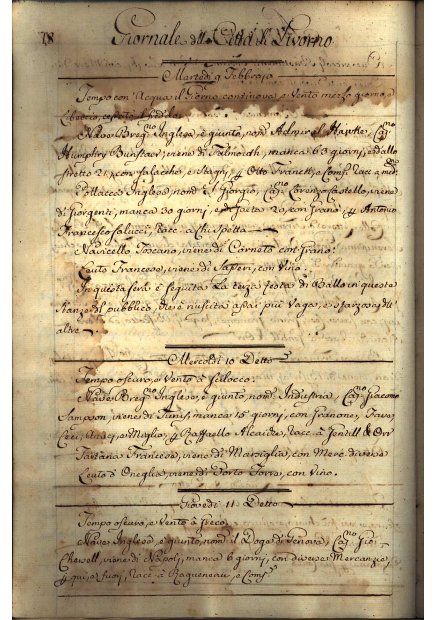 78 Giornale della Città di Livorno
Martedì 9 Febbrajo
Tempo con Acqua il Giorno continova, e Vento mezzo giorno, e
Libeccio,
Nave Breg.no Inglese, è giunto, nom.o Admirel Hawke, Cap.no
Humphry Bunstar, viene di Falmouth, manca 63 giorni, e dallo
stretto 21, con Salacche, e Stagni, Otto Franck, e Comp. Racc. a med.mo
Pollacca Inglese, nom.a S. Giorgio, Cap.no Lorenzo Castello, viene
di Giorgenti, manca 30 giorni, e di Gaeta 20, con Grano, p Antonio
Francesco Salucci, Racc. a chi spetta
Navicello Toscano, viene di Corneto con Grano.
Leuto Francese, viene di S. Peri, con Vino.
In questa sera è seguita la terza festa di Ballo in queste
Stanze del pubblico, che è riuscita assai più vaga, e sfarzosa dell'
altre
Mercoldì 10 Detto
Tempo oscuro, e Vento à Scilocco.
Nave Breg.no Inglese, è giunto, nom.o Industria, Cap.no Giacomo
Sampson, viene di Tunis, manca 15 giorni, con Granone, Fava,
Ceci, e Miglio, p Raffaello Alcaide, Racc. à Jentill & Orr
Tartana Francese, viene di Marsiglia, con Merc. diverse
Leuto d'Oneglia, viene di Porto Torre, con Vino.
Giovedì 11 Detto
Tempo oscuro, e Vento à Greco.
Nave Inglese, è giunto, nom.o il Doge di Genova, Cap.no Gio:
Chewell, viene di Napoli, manca 6 giorni, con diverse Mercanzie,
p qui, e fuori, Racc. à Ragueneau, e Comp.